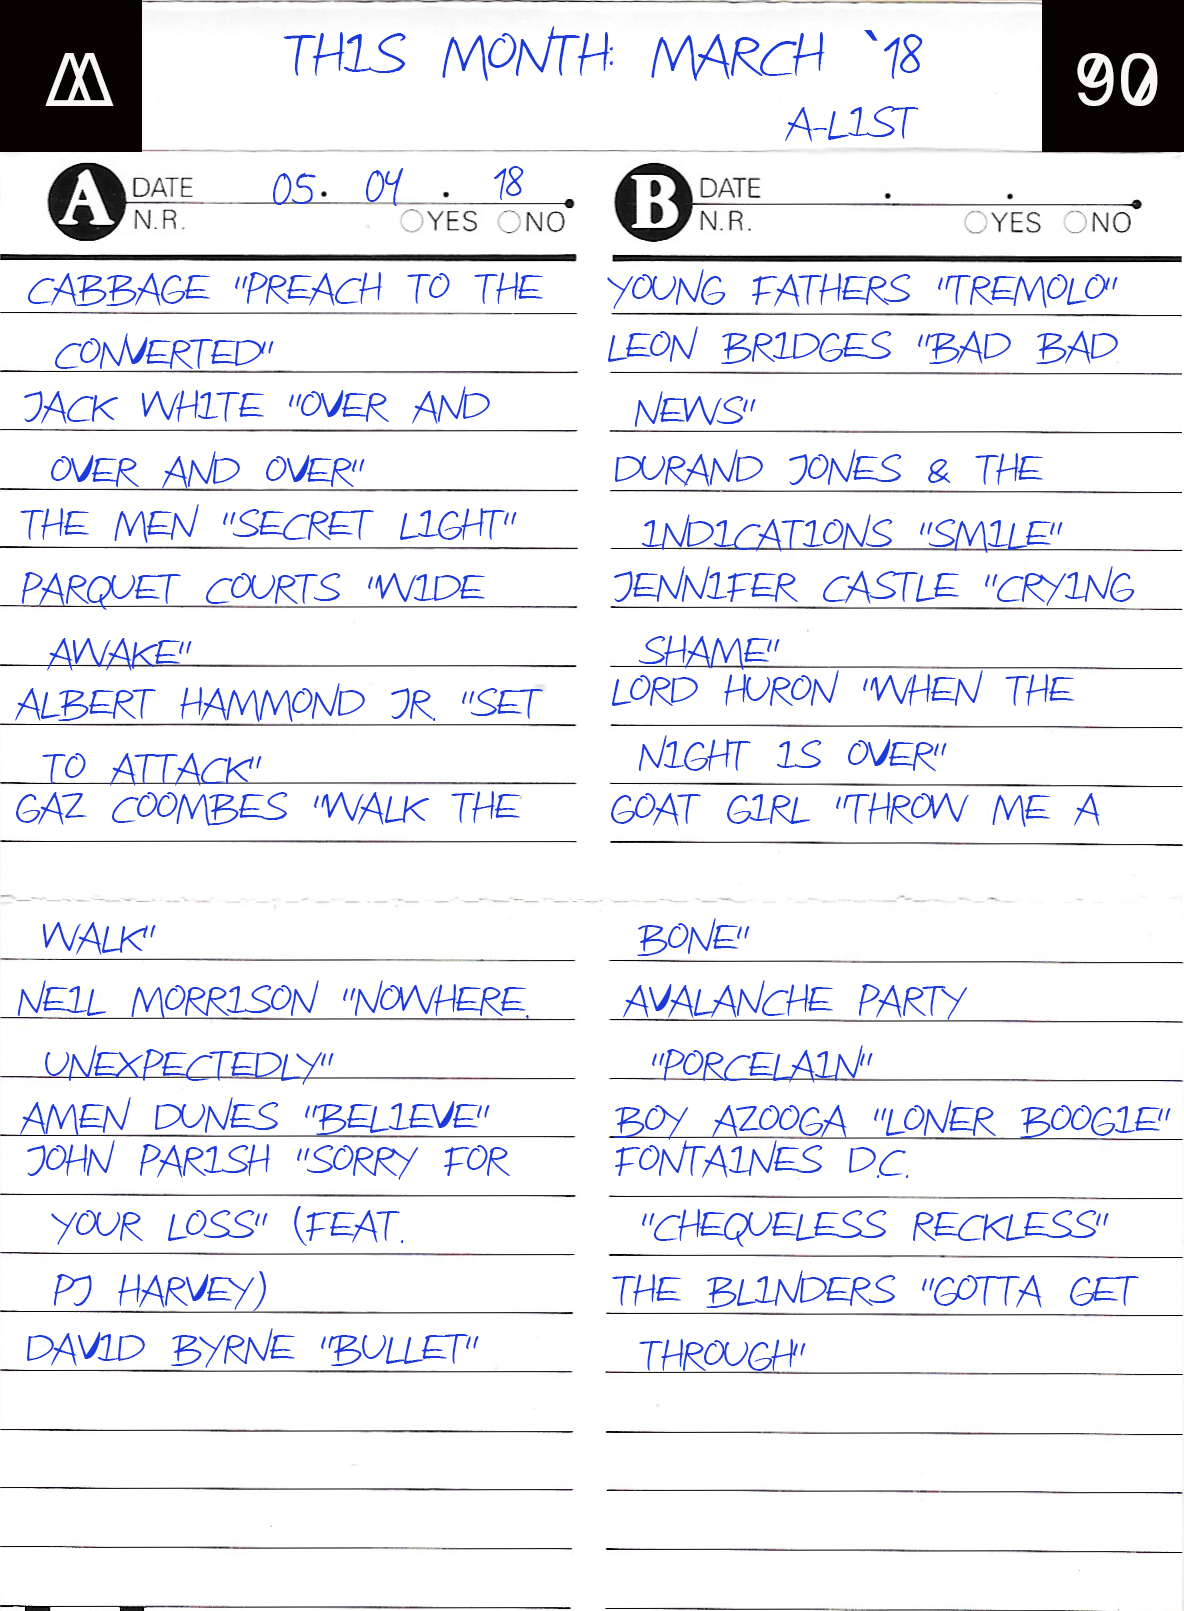 THIS MONTH: MARCH `18
90
A-LIST
A DATE 05. 04 . 18
N.R. YES NO
CABBAGE "PREACH TO THE
CONVERTED"
JACK WHITE "OVER AND
OVER AND OVER"
THE MEN "SECRET LIGHT"
PARQUET COURTS "WIDE
AWAKE"
ALBERT HAMMOND JR. "SET
TO ATTACK"
GAZ COOMBES "WALK THE
WALK"
NEIL MORRISON "NOWHERE,
UNEXPECTEDLY"
AMEN DUNES "BELIEVE"
JOHN PARISH "SORRY FOR
YOUR LOSS" (FEAT.
PJ HARVEY)
DAVID BYRNE "BULLET"
B DATE . .
N.R. YES NO
YOUNG FATHERS "TREMOLO"
LEON BRIDGES "BAD BAD
NEWS"
DURAND JONES & THE
INDICATIONS "SMILE"
JENNIFER CASTLE "CRYING
SHAME"
LORD HURON "WHEN THE
NIGHT IS OVER"
GOAT GIRL "THROW ME A
BONE"
AVALANCHE PARTY
"PORCELAIN"
BOY AZOOGA "LONER BOOGIE"
FONTAINES D.C.
"CHEQUELESS RECKLESS"
THE BLINDERS "GOTTA GET
THROUGH"